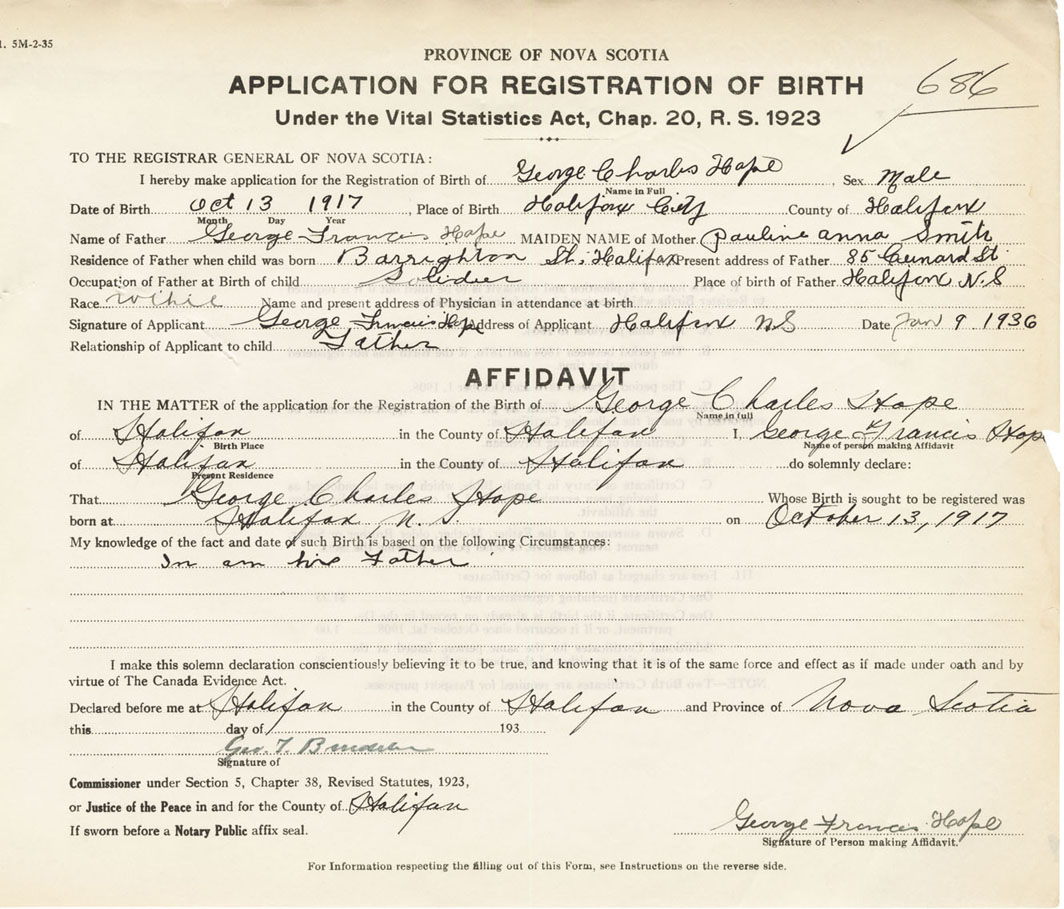 1. 5M-2-35
PROVINCE OF NOVA SCOTIA
APPLICATION FOR REGISTRATION OF BIRTH
686
Under the Vital Statistics Act, Chap. 20, R. S. 1923
TO THE REGISTRAR GENERAL OF NOVA SCOTIA:
I hereby make application for the Registration of Birth of George Charles Hope, Sex Male
Name in Full
Date of Birth Oct 13 1917, Place of Birth Halifax City County of Halifax
Month Day Year
Name of Father George Francis Hope MAIDEN NAME of Mother Pauline anna Smith
Residence of Father when child was born Barrighton St. Halifax Present address of Father 85 Cunard St
Occupation of Father at Birth of child Solidier Place of birth of Father Halifax N.S
Race White Name and present address of Physician in attendance at birth
Signature of Applicant George Francis Hope Address of Applicant Halifax NS Date Jan 9 1936
Relationship of Applicant to child Father
AFFIDAVIT
IN THE MATTER of the application for the Registration of the Birth of George Charles Hope
Name in full
of Halifax in the County of Halifax I, George Francis Hop
Birth Place Name of person making Affidavit
of Halifax in the County of Halifax do solemnly declare:
Present Residence
That George Charles Hope Whose Birth is sought to be registered was
born at Halifax N.S. on October 13, 1917
My knowledge of the fact and date of such Birth is based on the following Circumstances:
In am his Father
I make this solemn declaration conscientiously believing it to be true, and knowing that it is of the same force and effect as if made under oath and by
virtue of The Canada Evidence Act.
Declared before me at Halifax in the County of Halifax and Province of Nova Scotia
this day of 193
Geo. T.
Signature of
Commissioner under Section 5, Chapter 38, Revised Statutes, 1923,
or Justice of the Peace in and for the County of Halifax
If sworn before a Notary Public affix seal. George Francis Hope
Signature of Person making Affidavit.
For Information respecting the filling out of this Form, see Instructions on the reverse side.